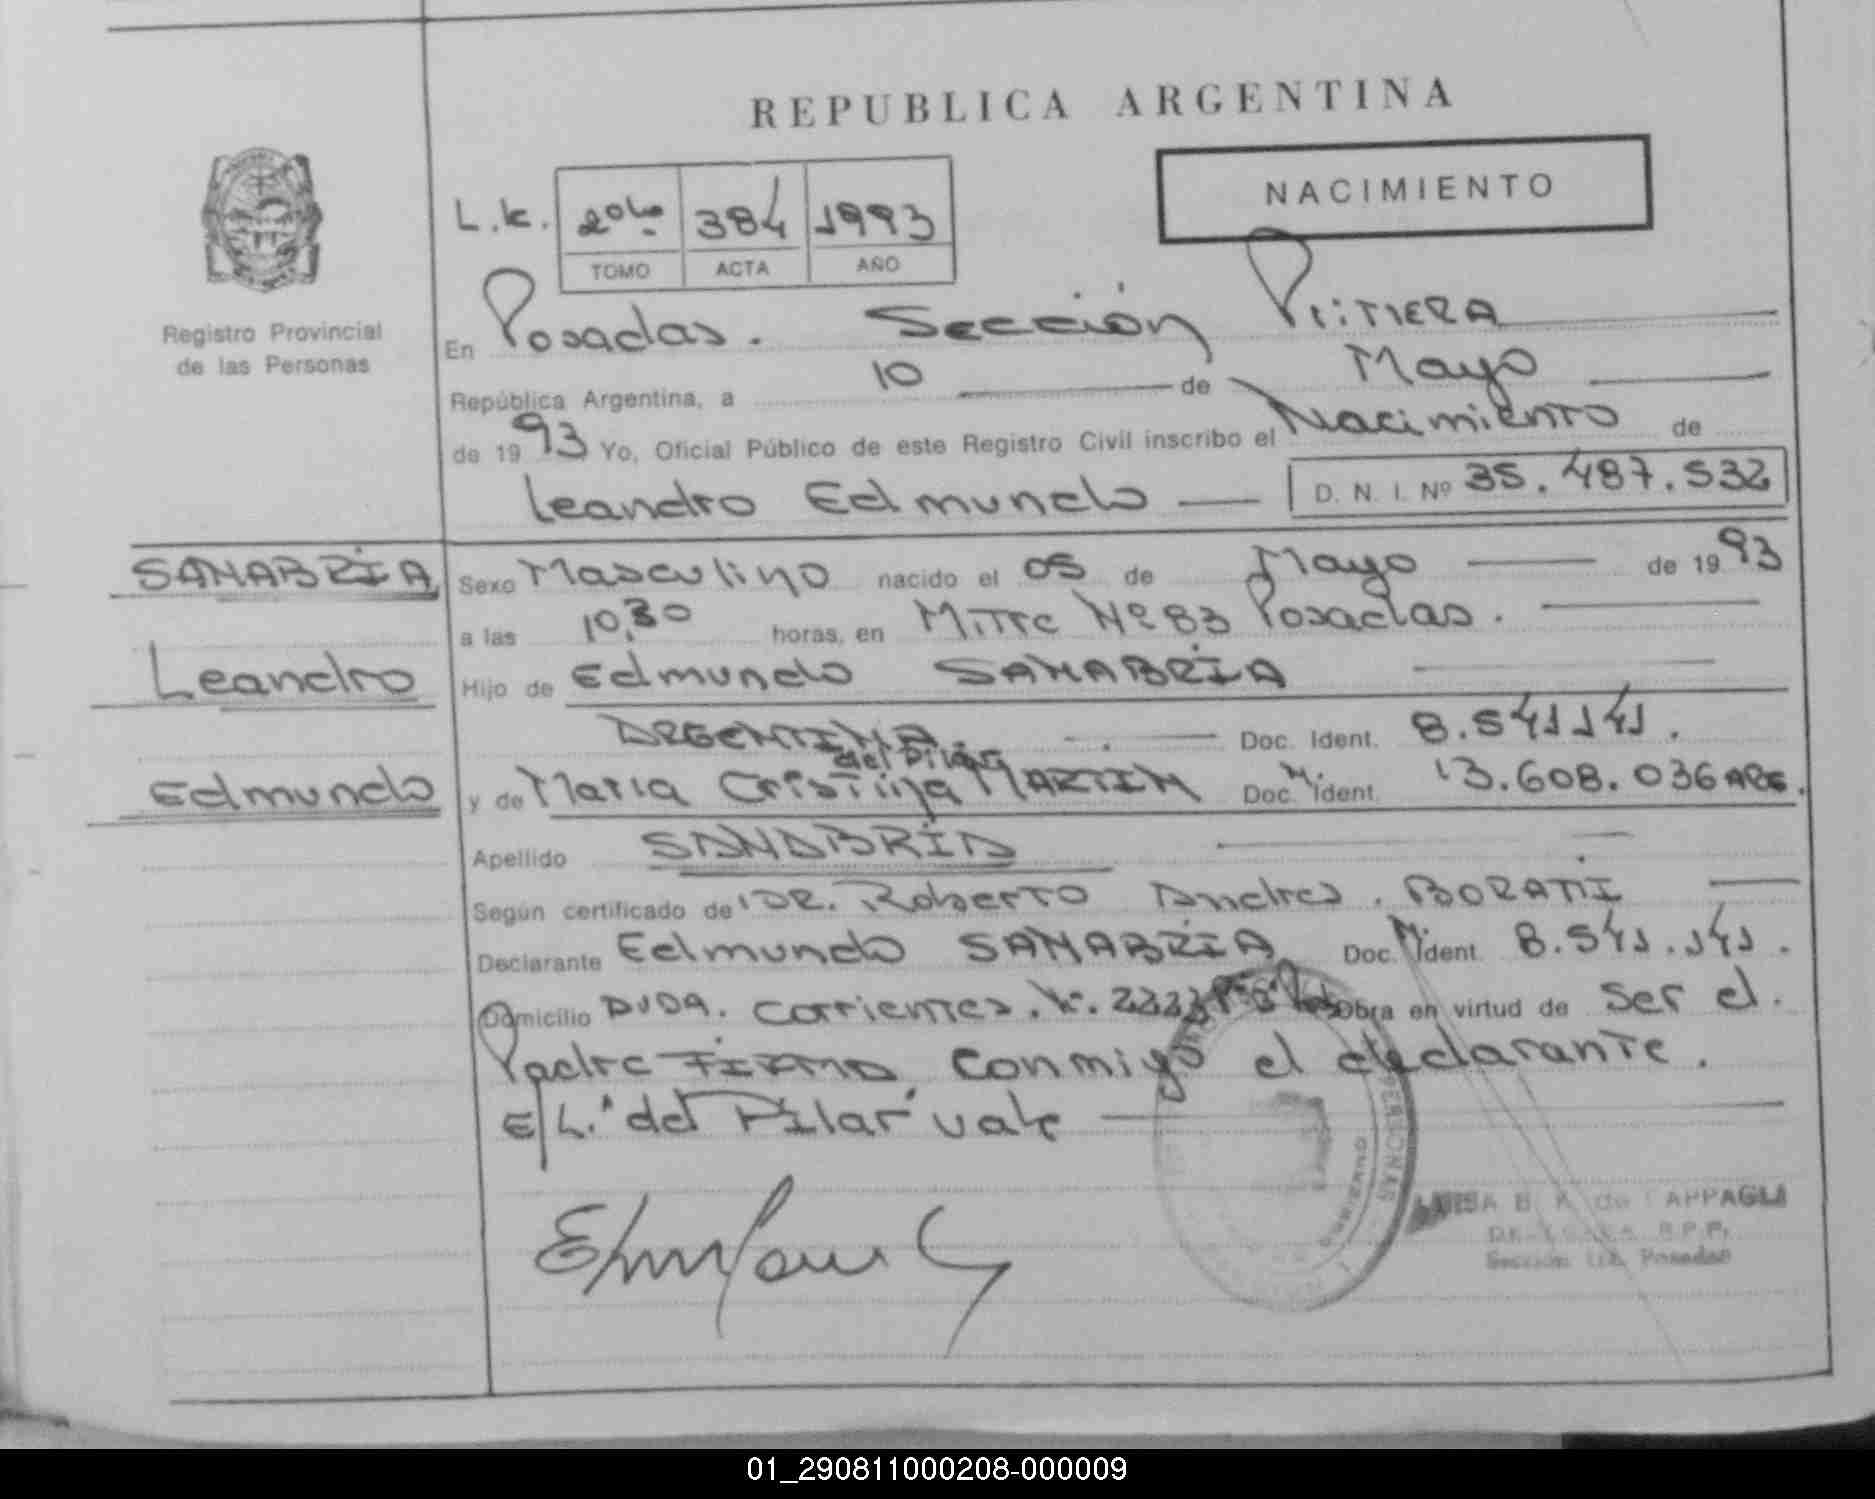 REPUBLICA ARGENTINA
NACIMIENTO
L.k. 2º 384 1993
TOMO ACTA AÑO
Registro Provincial
de las Personas
En Posadas. Sección Primera
República Argentina, a 10 de Mayo
de 1993 Yo, Oficial Público de este Registro Civil inscribo el Nacimiento de
Leandro Edmundo D. N. I. Nº 35.487.532
SANABRIA
Leandro
Edmundo
Sexo Masculino nacido el 05 de Mayo de 1993
a las 10,30 horas, en Mitre Nº 83 Posadas.
Hijo de Edmundo SANABRIA
ARGENTINA Doc. Ident. 8.541141.
del Pilar
y de Maria Cristina MARTIN Doc. N. Ident. 13.608.036 ARG.
Apellido SANABRIA
Según certificado de DR. Roberto Andres. BORATTI
Declarante Edmundo SANABRIA Doc. N. Ident. 8.541.141.
Domicilio Avda. Corrientes. Obra en virtud de Ser el.
Padre FIRMA conmigo el declarante.
E/L. "del Pilar" vale
PERSONAS
LUISA B. K. de CAPPAGLI
R.P.P.
Sección 1ra. Posadas
01_290811000208-000009